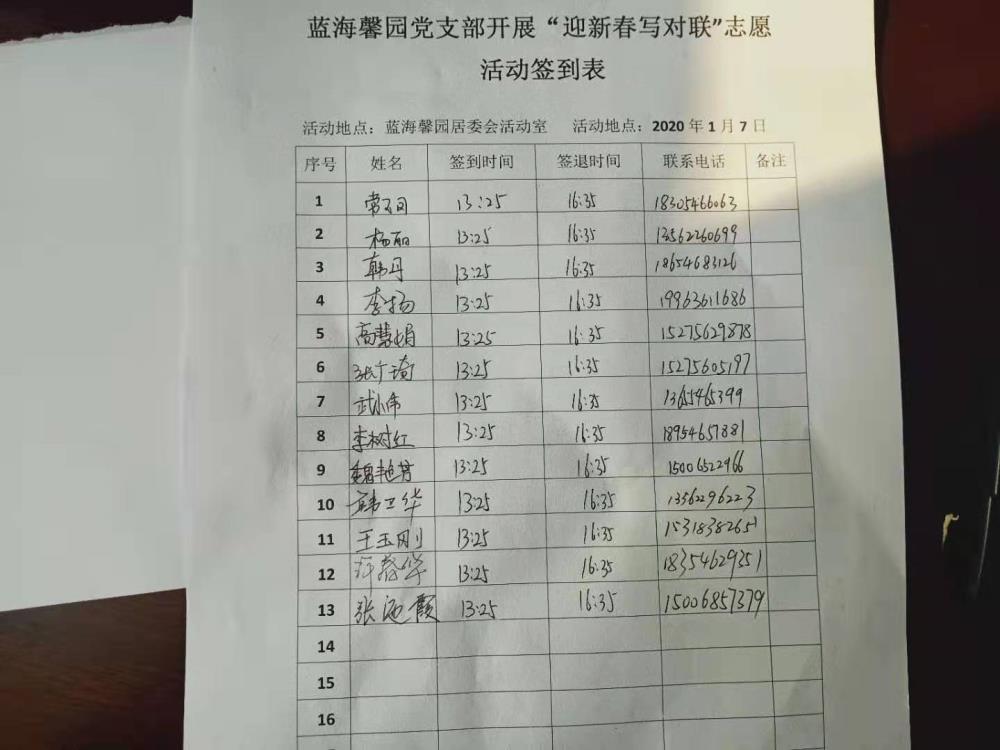 蓝海馨园党支部开展“迎新春写对联”志愿
活动签到表
活动地点：蓝海馨园居委会活动室 活动地点：2020 年 1 月 7 日
序号 姓名 签到时间 签退时间 联系电话 备注
1 13:25 16:35 18305466063
2 杨丽 13:25 16:35 13562260699
3 韩丹 13:25 16:35 18654683126
4 李扬 13:25 16:35 19963611686
5 高慧娟 13:25 16:35 15275629878
6 张广琦 13:25 16:35 15275605197
7 武小伟 13:25 16:35 13655465399
8 李树红 13:25 16:35 18954657881
9 魏艳芳 13:25 16:35 15006522966
10 韩卫华 13:25 16:35 13562296223
11 王玉刚 13:25 16:35 15318382651
12 13:25 16:35 18354629351
13 张海霞 13:25 16:35 15006857379
14
15
16